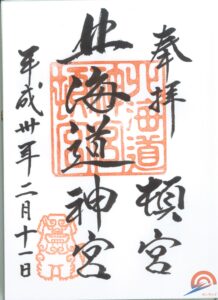 奉拝
頓宮
北海道神宮
平成卅年二月十一日
北海道
神宮
頓宮